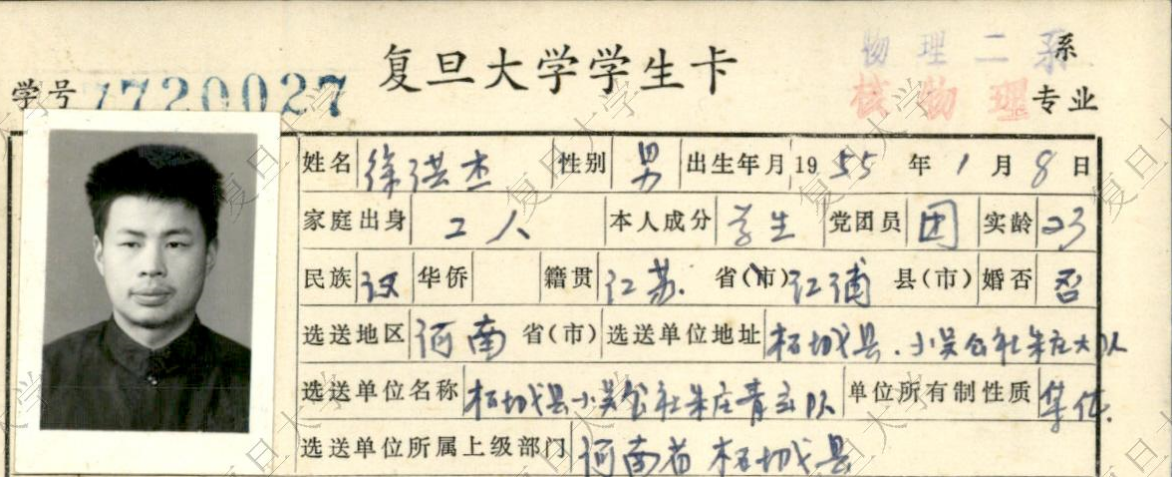 复旦大学学生卡
物理二系 系
学号 7720027
核物理 专业
姓名 徐洪杰 性别 男 出生年月 1955年1月8日
家庭出身 工人 本人成分 学生 党团员 团 实龄 23
民族 汉 华侨 籍贯 江苏 省(市) 江浦 县(市) 婚否 否
选送地区 河南 省(市) 选送单位地址 柘城县.小吴公社朱庄大队
选送单位名称 柘城县小吴公社朱庄青年队 单位所有制性质 集体
选送单位所属上级部门 河南省柘城县
复旦大学